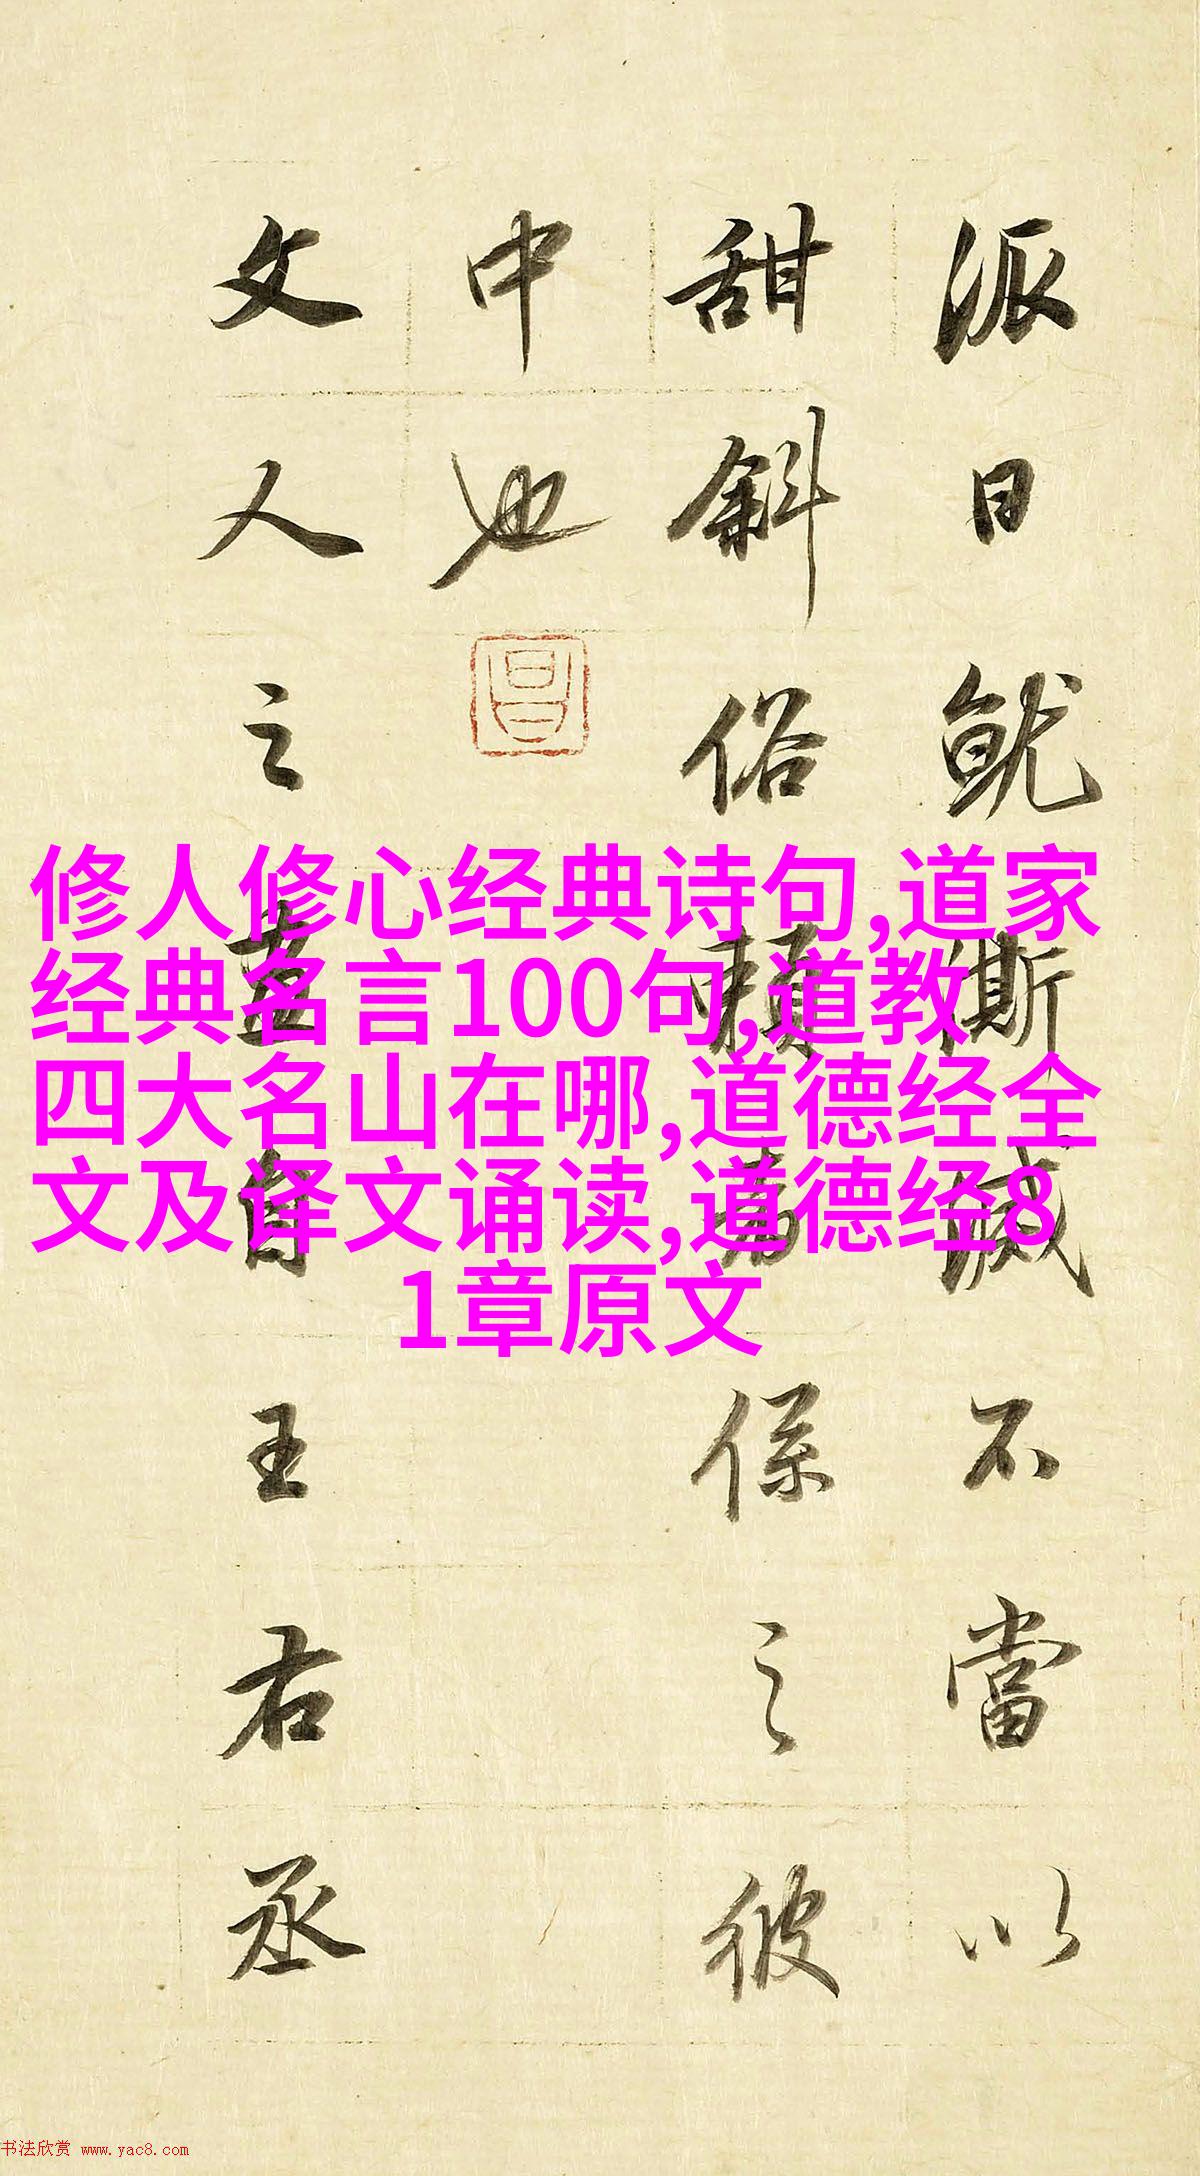 派日就澌滅不當以
甜斜俗賴者係之彼
中也
昌
文人之畫自王右丞
修人修心经典诗句,道家
经典名言100句,道教
四大名山在哪,道德经全
文及译文诵读,道德经8
1章原文
书法欣赏 www.yac8.com